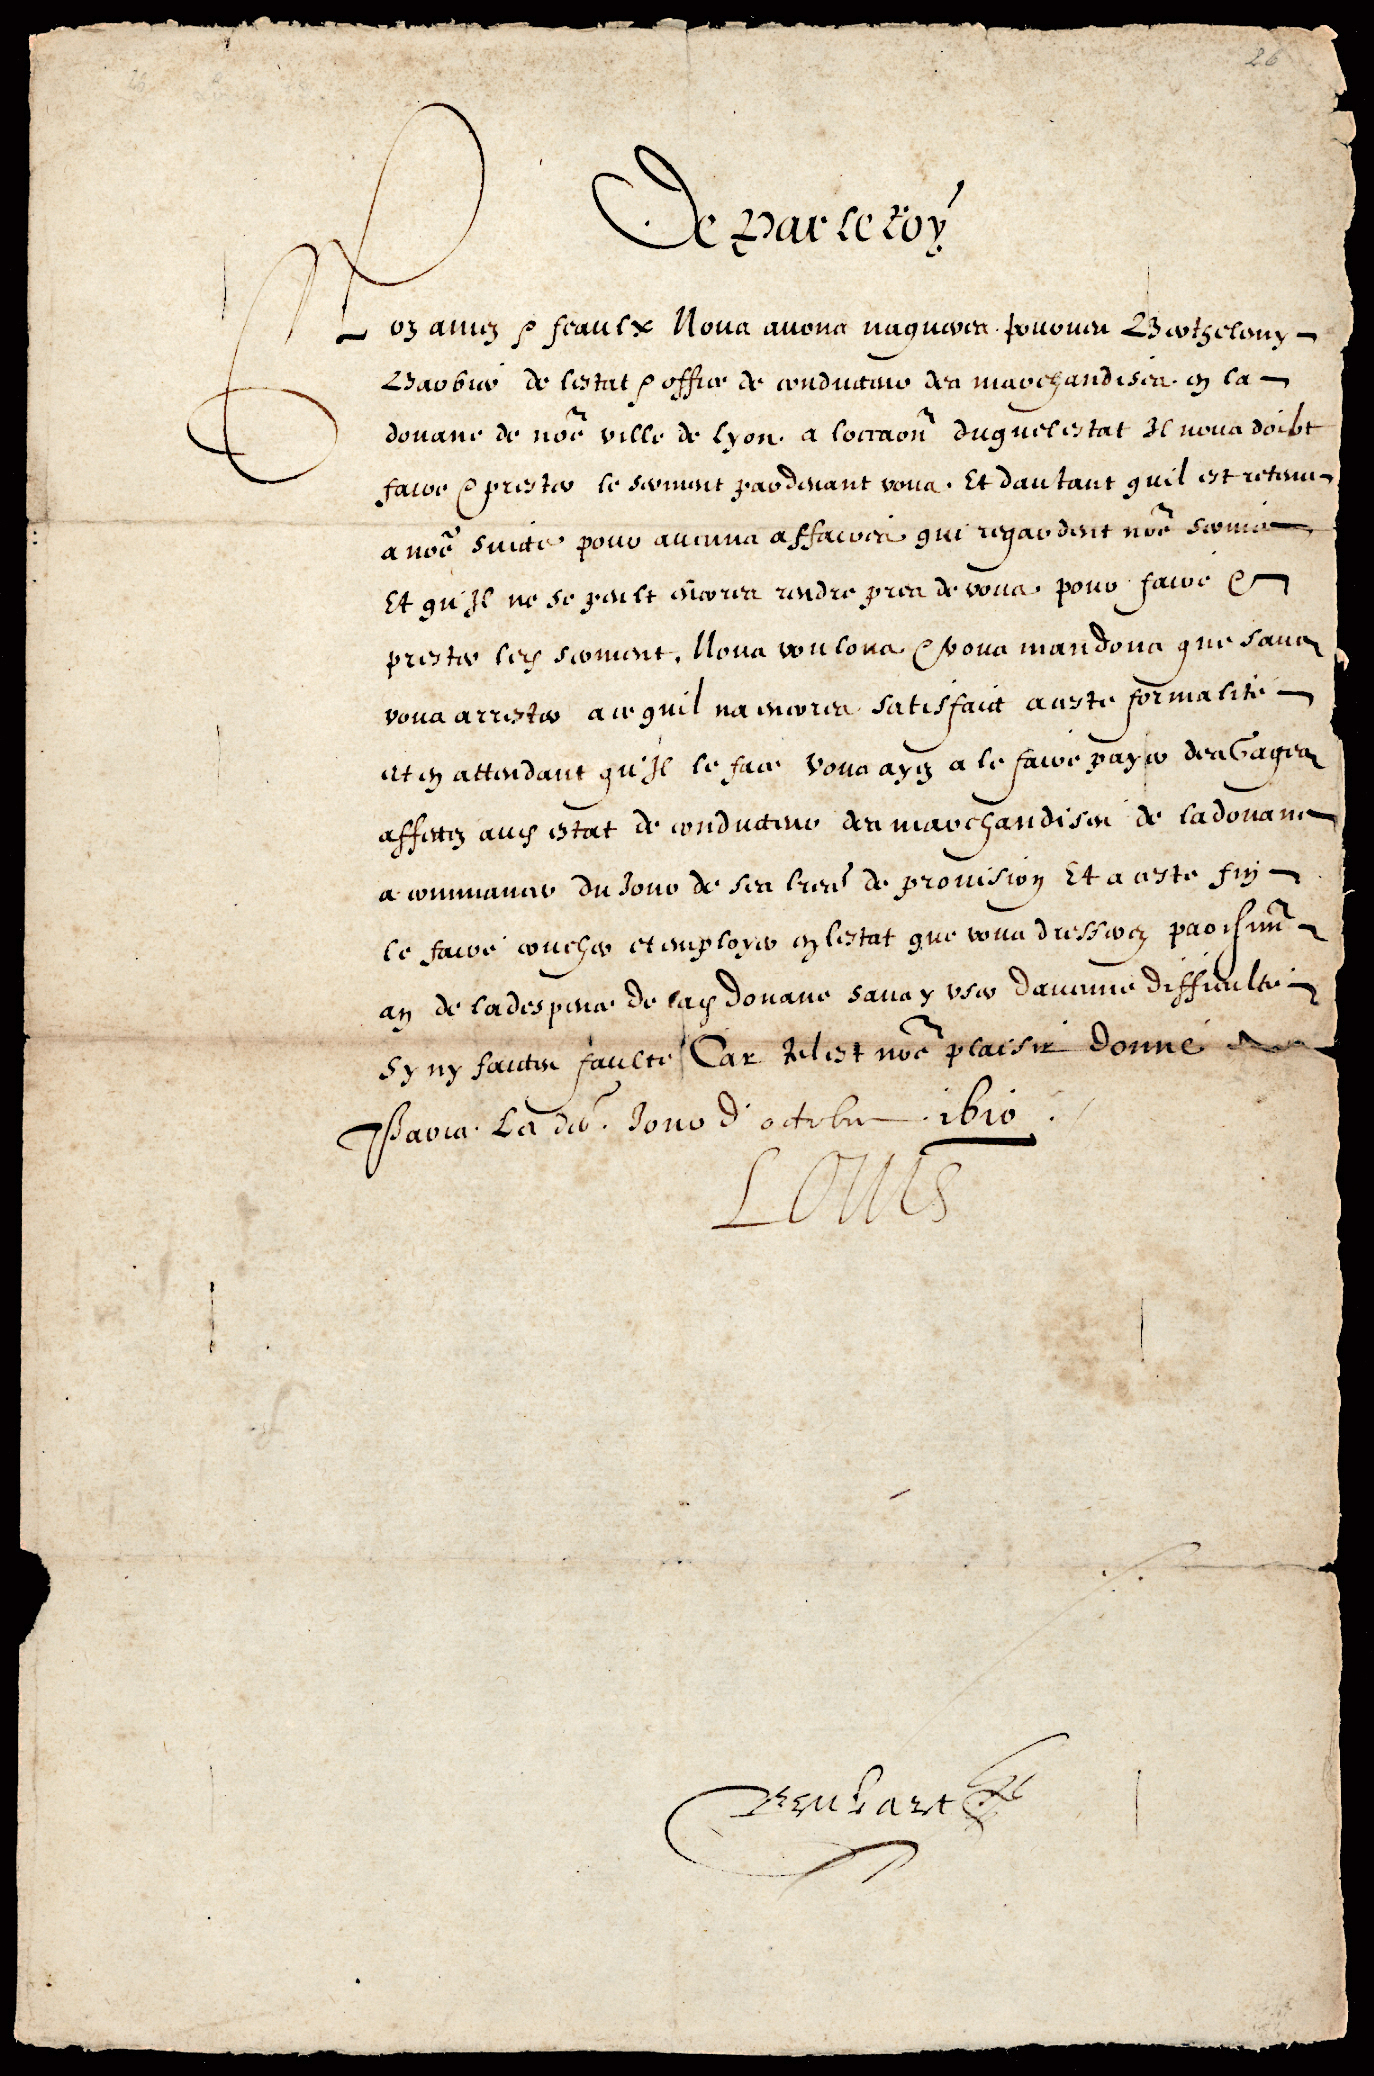 26
De par le roy
Noz amez & feaulx Nous avons nagueres pourveu Berthelemy
Barbier de lestat & office de conducteur des marchandises en la
douane de nõe ville de Lyon a loccaõn duquel estat Il nous doibt
faire & prester le serment pardevant vous. Et dautant quil est retenu
a nõe suitte pour aucuns affaires qui regardent nõe service
Et qu'Il ne se peult encores rendre pres de vous pour faire &
prester led serment, Nous voulons & vous mandons que sans
vous arrester a ce quil na encores satisfaict a ceste formalité
et en attendant qu'Il le face Vous ayez a le faire payer des Gages
affectez aud estat de conducteur des marchandises de la douane
a commancer du Jour de ses lres de provision Et a ceste fin
le faire coucher et employer en lestat que vous dresserez par chũn
an de la despence de lad douane sans y user daucune difficulté
Sy ny faictes faulte Car tel est nõe plaisir Donné a
Paris Le Jour d'octobre 1610.
Louis